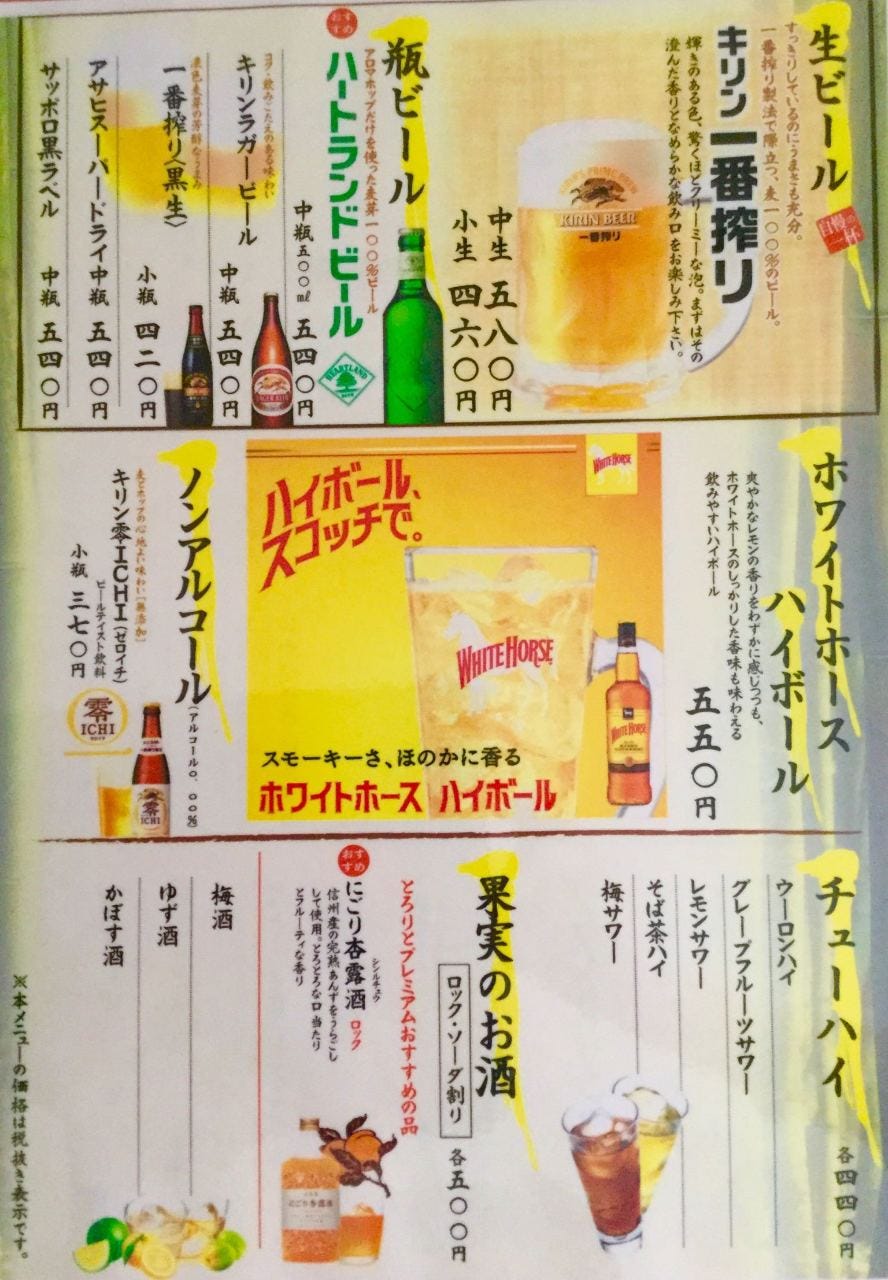 生ビール
自慢の一杯
すっきりしているのにうまさも充分。
一番搾り製法で際立つ、麦一〇〇%のビール。
キリン一番搾り
輝きのある色、驚くほどクリーミーな泡。まずはその
澄んだ香りとなめらかな飲み口をお楽しみ下さい。
KIRIN BEER
一番搾り
中生 五八〇円
小生 四六〇円
瓶ビール
アロマホップだけを使った麦芽一〇〇%ビール
おすすめ
ハートランドビール
HEARTLAND
BEER
中瓶五〇〇ml 五四〇円
コク・飲みごたえのある味わい
キリンラガービール
中瓶 五四〇円
濃色麦芽の芳醇なうまみ
一番搾り〈黒生〉
小瓶 四二〇円
アサヒスーパードライ 中瓶 五四〇円
サッポロ黒ラベル 中瓶 五四〇円
ホワイトホース
ハイボール
爽やかなレモンの香りをわずかに感じつつも、
ホワイトホースのしっかりした香味も味わえる
飲みやすいハイボール
五五〇円
WHITE HORSE
ハイボール、
スコッチで。
WHITE HORSE
WHITE HORSE
スモーキーさ、ほのかに香る
ホワイトホース ハイボール
ノンアルコール(アルコール〇.〇〇%)
麦とホップの心地よい味わい[無添加]
キリン零ICHI(ゼロイチ)
ビールテイスト飲料
小瓶 三七〇円
零
ICHI
零
ICHI
チューハイ 各四四〇円
ウーロンハイ
グレープフルーツサワー
レモンサワー
そば茶ハイ
梅サワー
果実のお酒
ロック・ソーダ割り 各五〇〇円
とろりとプレミアムおすすめの品
おすすめ
にごり杏露酒 ロック
シンルチュウ
信州産の完熟あんずをうらごし
して使用。とろとろな口当たり
とフルーティな香り
にごり杏露酒
梅酒
ゆず酒
かぼす酒
※本メニューの価格は税抜き表示です。